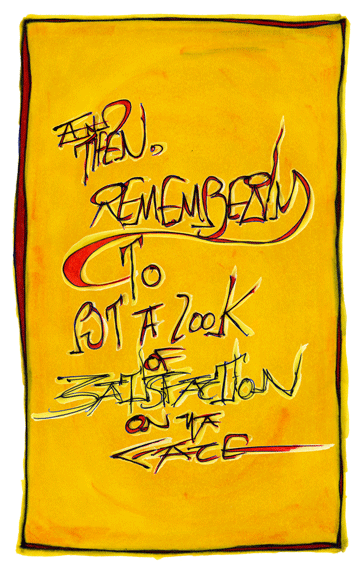 AND
THEN,
REMEMBERIN
TO
PUT A LOOK
OF
SATISFACTION
ON YA
FACE